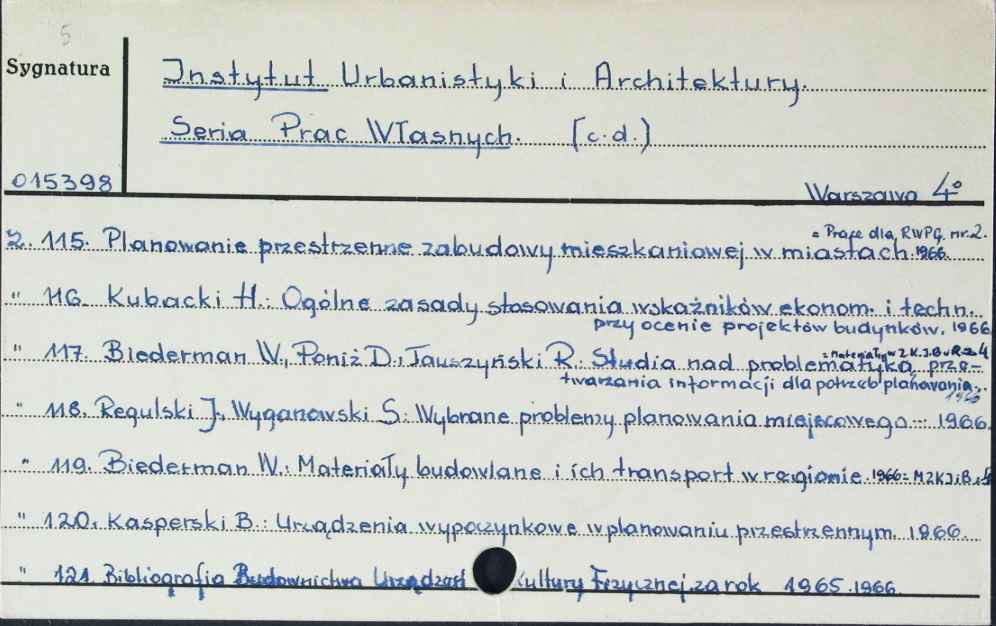 5
Sygnatura
Instytut Urbanistyki i Architektury.
Seria Prac Własnych. [c.d.]
015398
Warszawa 4°
= Prace dla RWPG. nr. 2.
Z. 115. Planowanie przestrzenne zabudowy mieszkaniowej w miastach. 1966.
" 116. Kubacki H.: Ogólne zasady stosowania wskaźników ekonom. i techn.
przy ocenie projektów budynków. 1966
" 117. Biederman W., Poniż D., Tauszyński R.: Studia nad problematyką prze-
twarzania informacji dla potrzeb planowania.
1966
" 118. Regulski J., Wyganowski S.: Wybrane problemy planowania miejscowego... 1966.
" 119. Biederman W.: Materiały budowlane i ich transport w regionie. 1966
" 120. Kasperski B.: Urządzenia wypoczynkowe w planowaniu przestrzennym. 1966.
" 121. Bibliografia Budownictwa Urządzeń Kultury Fizycznej za rok 1965. 1966.